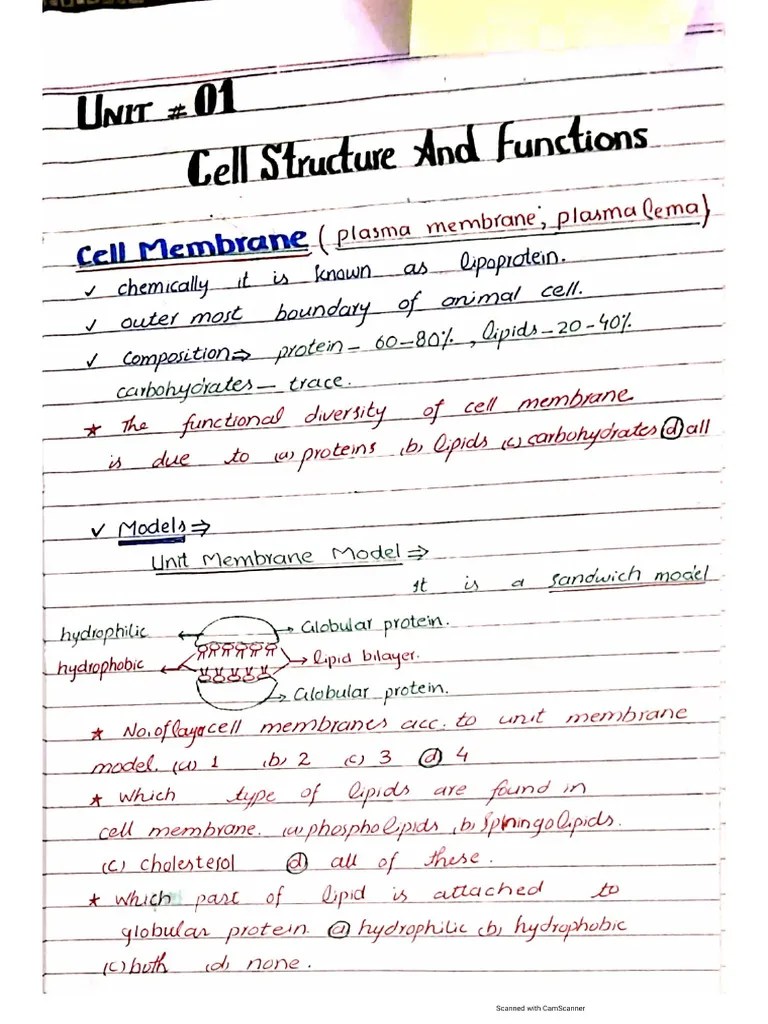 UNIT # 01
Cell Structure And Functions
Cell Membrane ( plasma membrane ; plasma lema )
✓ chemically it is known as lipoprotein.
✓ outer most boundary of animal cell.
✓ composition ⇒ protein – 60–80% , lipids – 20-40%
carbohydrates – trace.
★ The functional diversity of cell membrane
is due to (a) proteins (b) lipids (c) carbohydrates (d) all
✓ Models ⇒
Unit Membrane Model ⇒
it is a sandwich model
hydrophilic ← → Globular protein.
hydrophobic ← → lipid bilayer.
→ Globular protein.
★ No. of layer cell membranes acc. to unit membrane
model. (a) 1 (b) 2 (c) 3 (d) 4
★ which type of lipids are found in
cell membrane. (a) phospholipids (b) sphingolipids.
(c) cholesterol (d) all of these.
★ which part of lipid is attached to
globular protein. (a) hydrophilic (b) hydrophobic
(c) both (d) none.
Scanned with CamScanner